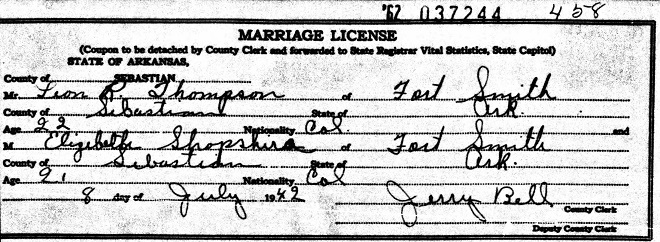 '62 037244 458
MARRIAGE LICENSE
(Coupon to be detached by County Clerk and forwarded to State Registrar Vital Statistics, State Capitol)
STATE OF ARKANSAS,
County of SEBASTIAN
Mr. Leon R. Thompson of Fort Smith
County of Sebastian State of Ark.
Age 22 Nationality Col and
M Elizibeth Shopshire of Fort Smith
County of Sebastian State of Ark.
Age 21 Nationality Col
8 day of July 1942 Jerry Bell
County Clerk
Deputy County Clerk